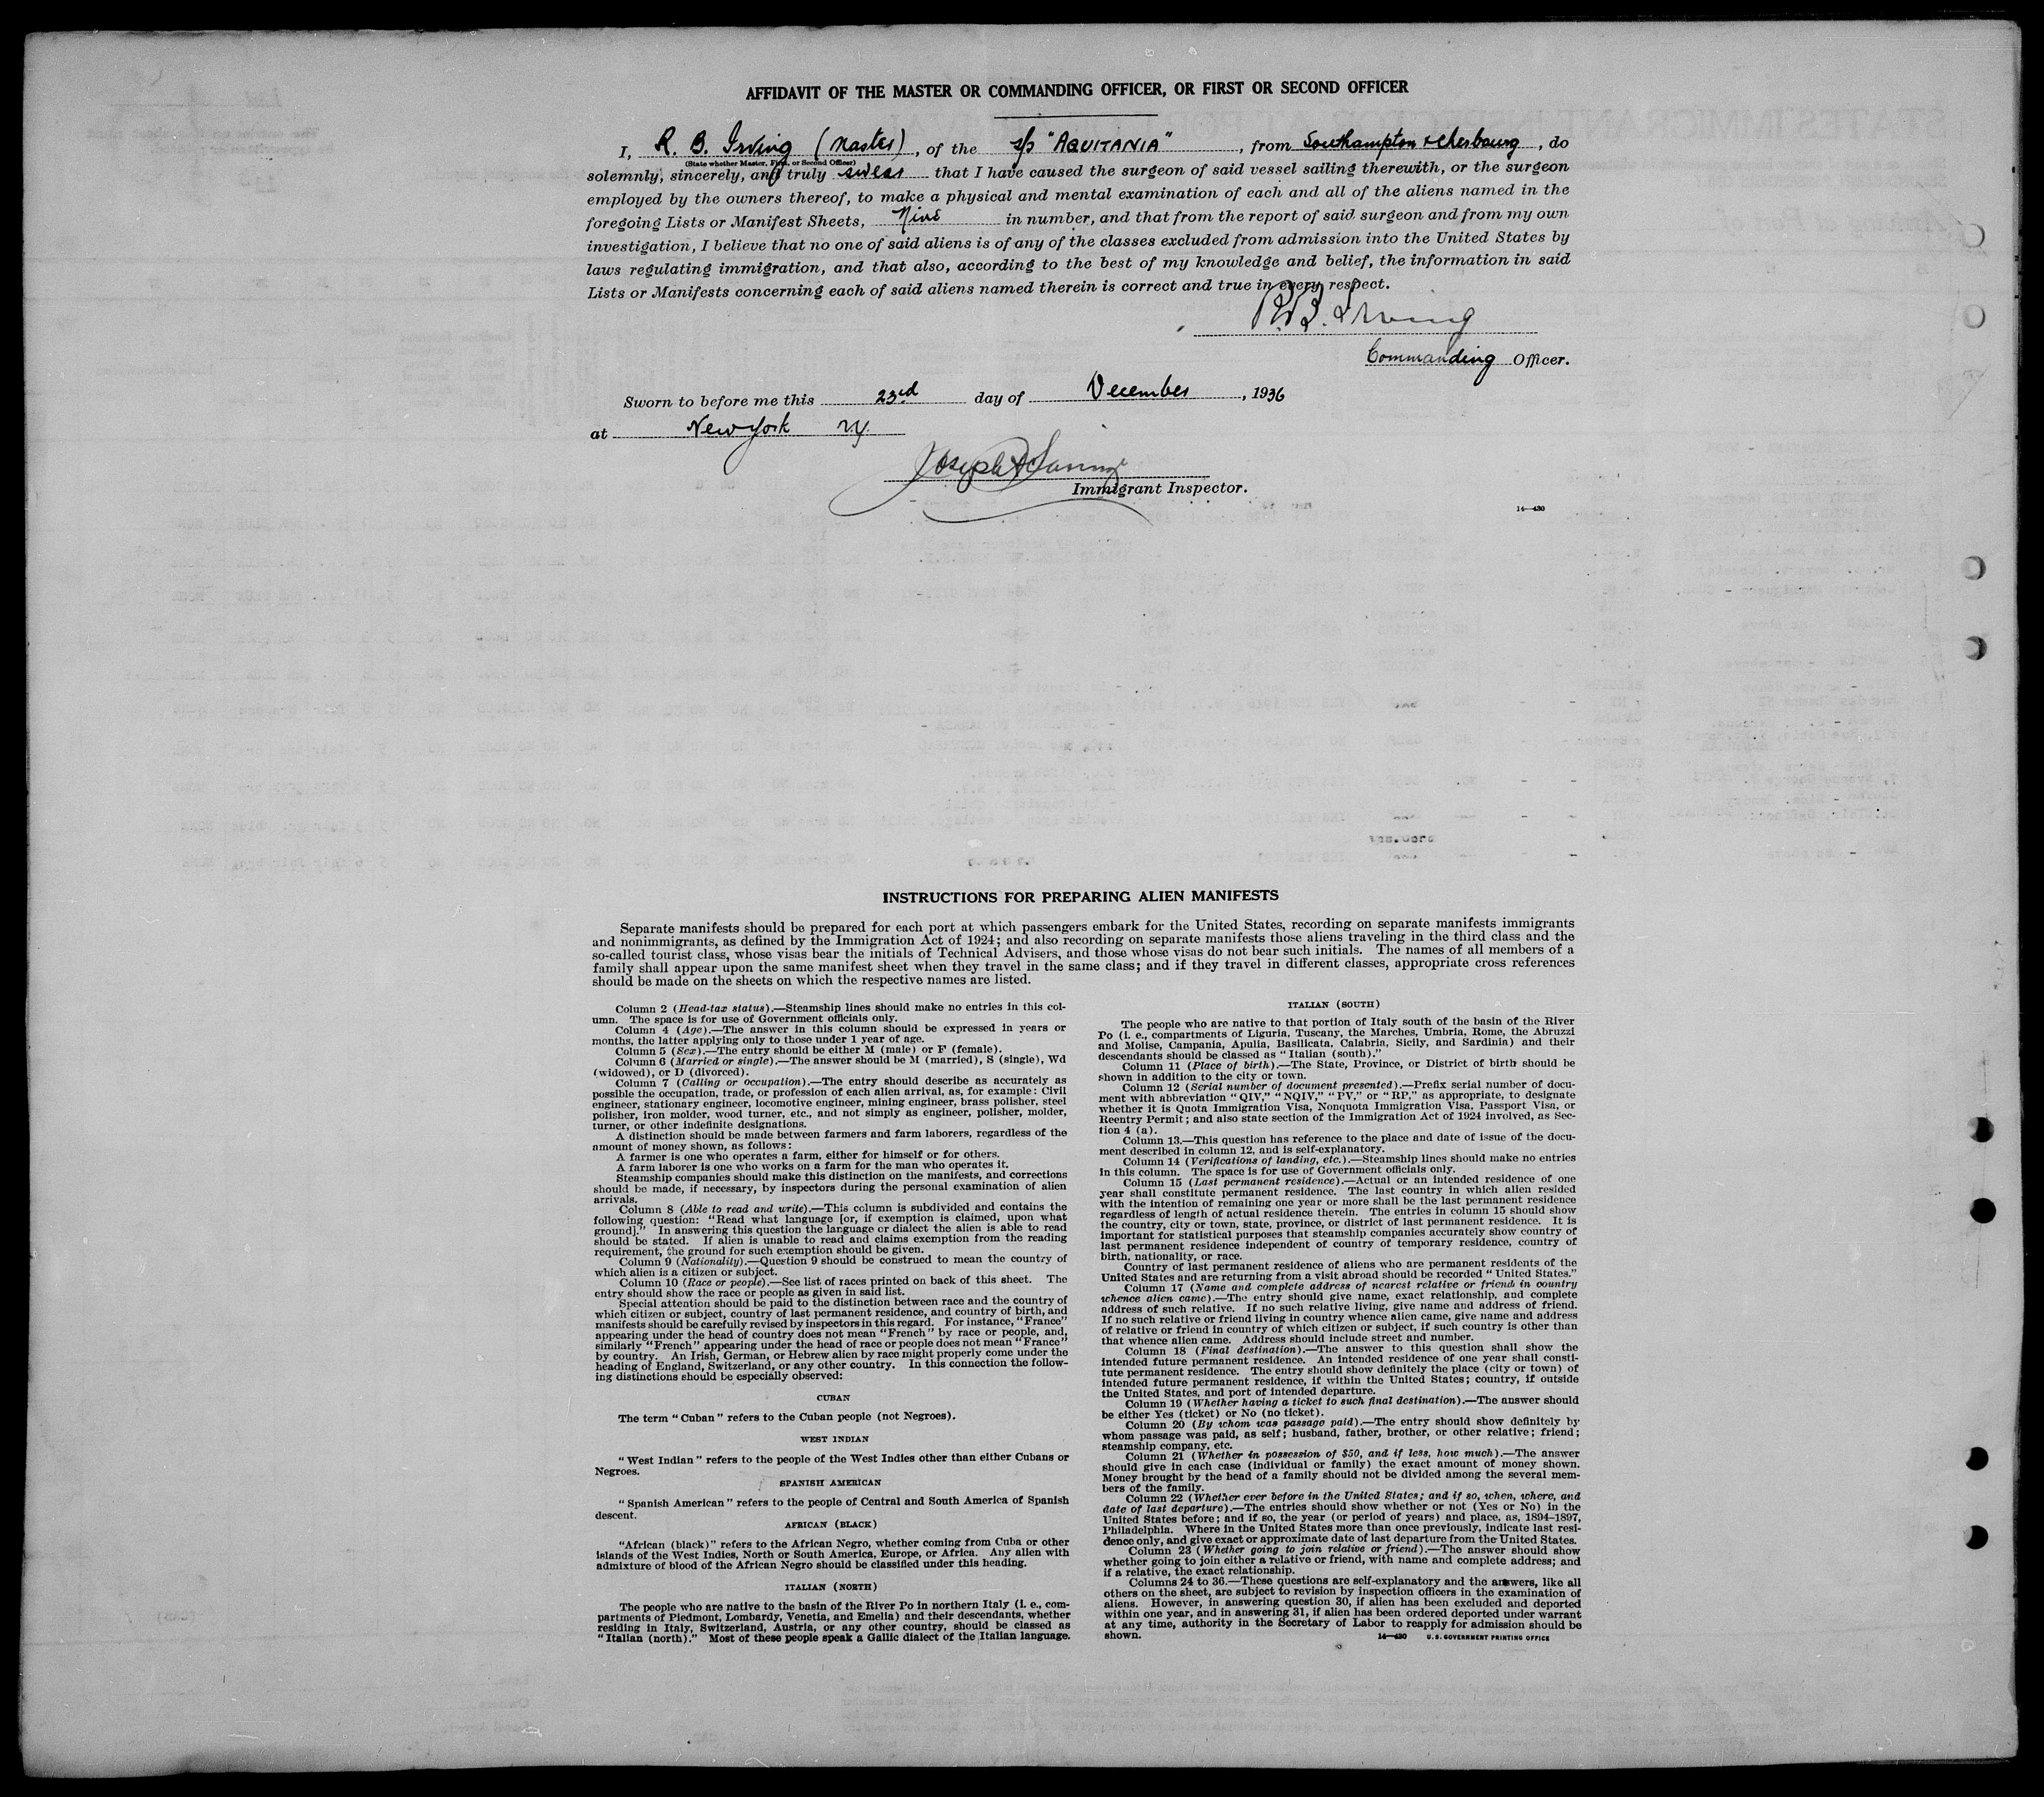 AFFIDAVIT OF THE MASTER OR COMMANDING OFFICER, OR FIRST OR SECOND OFFICER
I, R. B. Irving (Master), of the s/s "AQUITANIA", from Southampton & Cherbourg, do
(State whether Master, First, or Second Officer)
solemnly, sincerely, and truly swear that I have caused the surgeon of said vessel sailing therewith, or the surgeon
employed by the owners thereof, to make a physical and mental examination of each and all of the aliens named in the
foregoing Lists or Manifest Sheets, Nine in number, and that from the report of said surgeon and from my own
investigation, I believe that no one of said aliens is of any of the classes excluded from admission into the United States by
laws regulating immigration, and that also, according to the best of my knowledge and belief, the information in said
Lists or Manifests concerning each of said aliens named therein is correct and true in every respect.
R.B. Irving
Commanding Officer.
Sworn to before me this 23rd day of December, 1936
at New York N.Y.
Joseph
Immigrant Inspector.
14—430
INSTRUCTIONS FOR PREPARING ALIEN MANIFESTS
Separate manifests should be prepared for each port at which passengers embark for the United States, recording on separate manifests immigrants
and nonimmigrants, as defined by the Immigration Act of 1924; and also recording on separate manifests those aliens traveling in the third class and the
so-called tourist class, whose visas bear the initials of Technical Advisers, and those whose visas do not bear such initials. The names of all members of a
family shall appear upon the same manifest sheet when they travel in the same class; and if they travel in different classes, appropriate cross references
should be made on the sheets on which the respective names are listed.
Column 2 (Head-tax status).—Steamship lines should make no entries in this col-
umn. The space is for use of Government officials only.
Column 4 (Age).—The answer in this column should be expressed in years or
months, the latter applying only to those under 1 year of age.
Column 5 (Sex).—The entry should be either M (male) or F (female).
Column 6 (Married or single).—The answer should be M (married), S (single), Wd
(widowed), or D (divorced).
Column 7 (Calling or occupation).—The entry should describe as accurately as
possible the occupation, trade, or profession of each alien arrival, as, for example: Civil
engineer, stationary engineer, locomotive engineer, mining engineer, brass polisher, steel
polisher, iron molder, wood turner, etc., and not simply as engineer, polisher, molder,
turner, or other indefinite designations.
A distinction should be made between farmers and farm laborers, regardless of the
amount of money shown, as follows:
A farmer is one who operates a farm, either for himself or for others.
A farm laborer is one who works on a farm for the man who operates it.
Steamship companies should make this distinction on the manifests, and corrections
should be made, if necessary, by inspectors during the personal examination of alien
arrivals.
Column 8 (Able to read and write).—This column is subdivided and contains the
following question: "Read what language [or, if exemption is claimed, upon what
ground]." In answering this question the language or dialect the alien is able to read
should be stated. If alien is unable to read and claims exemption from the reading
requirement, the ground for such exemption should be given.
Column 9 (Nationality).—Question 9 should be construed to mean the country of
which alien is a citizen or subject.
Column 10 (Race or people).—See list of races printed on back of this sheet. The
entry should show the race or people as given in said list.
Special attention should be paid to the distinction between race and the country of
which citizen or subject, country of last permanent residence, and country of birth, and
manifests should be carefully revised by inspectors in this regard. For instance, "France"
appearing under the head of country does not mean "French" by race or people, and,
similarly "French" appearing under the head of race or people does not mean "France"
by country. An Irish, German, or Hebrew alien by race might properly come under the
heading of England, Switzerland, or any other country. In this connection the follow-
ing distinctions should be especially observed:
CUBAN
The term "Cuban" refers to the Cuban people (not Negroes).
WEST INDIAN
"West Indian" refers to the people of the West Indies other than either Cubans or
Negroes.
SPANISH AMERICAN
"Spanish American" refers to the people of Central and South America of Spanish
descent.
AFRICAN (BLACK)
"African (black)" refers to the African Negro, whether coming from Cuba or other
islands of the West Indies, North or South America, Europe, or Africa. Any alien with
admixture of blood of the African Negro should be classified under this heading.
ITALIAN (NORTH)
The people who are native to the basin of the River Po in northern Italy (i. e., com-
partments of Piedmont, Lombardy, Venetia, and Emelia) and their descendants, whether
residing in Italy, Switzerland, Austria, or any other country, should be classed as
"Italian (north)." Most of these people speak a Gallic dialect of the Italian language.
ITALIAN (SOUTH)
The people who are native to that portion of Italy south of the basin of the River
Po (i. e., compartments of Liguria, Tuscany, the Marches, Umbria, Rome, the Abruzzi
and Molise, Campania, Apulia, Basilicata, Calabria, Sicily, and Sardinia) and their
descendants should be classed as "Italian (south)."
Column 11 (Place of birth).—The State, Province, or District of birth should be
shown in addition to the city or town.
Column 12 (Serial number of document presented).—Prefix serial number of docu-
ment with abbreviation "QIV," "NQIV," "PV," or "RP," as appropriate, to designate
whether it is Quota Immigration Visa, Nonquota Immigration Visa, Passport Visa, or
Reentry Permit; and also state section of the Immigration Act of 1924 involved, as Sec-
tion 4 (a).
Column 13.—This question has reference to the place and date of issue of the docu-
ment described in column 12, and is self-explanatory.
Column 14 (Verifications of landing, etc.).—Steamship lines should make no entries
in this column. The space is for use of Government officials only.
Column 15 (Last permanent residence).—Actual or an intended residence of one
year shall constitute permanent residence. The last country in which alien resided
with the intention of remaining one year or more shall be the last permanent residence
regardless of length of actual residence therein. The entries in column 15 should show
the country, city or town, state, province, or district of last permanent residence. It is
important for statistical purposes that steamship companies accurately show country of
last permanent residence independent of country of temporary residence, country of
birth, nationality, or race.
Country of last permanent residence of aliens who are permanent residents of the
United States and are returning from a visit abroad should be recorded "United States."
Column 17 (Name and complete address of nearest relative or friend in country
whence alien came).—The entry should give name, exact relationship, and complete
address of such relative. If no such relative living, give name and address of friend.
If no such relative or friend living in country whence alien came, give name and address
of relative or friend in country of which citizen or subject, if such country is other than
that whence alien came. Address should include street and number.
Column 18 (Final destination).—The answer to this question shall show the
intended future permanent residence. An intended residence of one year shall consti-
tute permanent residence. The entry should show definitely the place (city or town) of
intended future permanent residence, if within the United States; country, if outside
the United States, and port of intended departure.
Column 19 (Whether having a ticket to such final destination).—The answer should
be either Yes (ticket) or No (no ticket).
Column 20 (By whom was passage paid).—The entry should show definitely by
whom passage was paid, as self; husband, father, brother, or other relative; friend;
steamship company, etc.
Column 21 (Whether in possession of $50, and if less, how much).—The answer
should give in each case (individual or family) the exact amount of money shown.
Money brought by the head of a family should not be divided among the several mem-
bers of the family.
Column 22 (Whether ever before in the United States; and if so, when, where, and
date of last departure).—The entries should show whether or not (Yes or No) in the
United States before; and if so, the year (or period of years) and place, as, 1894-1897,
Philadelphia. Where in the United States more than once previously, indicate last resi-
dence only, and give exact or approximate date of last departure from the United States.
Column 23 (Whether going to join relative or friend).—The answer should show
whether going to join either a relative or friend, with name and complete address; and
if a relative, the exact relationship.
Columns 24 to 36.—These questions are self-explanatory and the answers, like all
others on the sheet, are subject to revision by inspection officers in the examination of
aliens. However, in answering question 30, if alien has been excluded and deported
within one year, and in answering 31, if alien has been ordered deported under warrant
at any time, authority in the Secretary of Labor to reapply for admission should be
shown.
14—430 U. S. GOVERNMENT PRINTING OFFICE